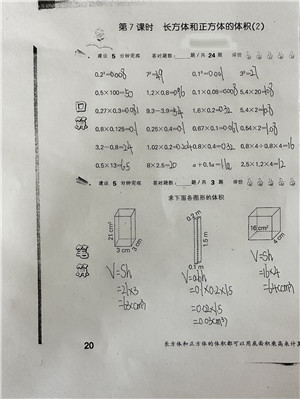 第7课时 长方体和正方体的体积(2)
建议 5 分钟完成 答对题数: 题/共 24 题 评价
0.2³=0.008 7²=49 0.1³=0.001 3³=27
0.5×100=50 1.2×0.8=0.96 0.1×0.08=0.008 5.4×20=108
0.27×0.3=0.081 9.3-3.9=5.4 1.6×0.2=0.32 5.4×2=10.8
0.8×0.125=0.1 0.25×0.4=0.1 0.67×0.1=0.067 0.54×2=1.08
3.2-0.8=2.4 1.02×0.2=0.204 0.8×0.4=0.32 0.8×4÷0.8×4=16
0.5×13=6.5 8×2.5=20 a+0.1a=1.1a 2.5×1.2×4=12
建议 5 分钟完成 答对题数: 题/共 3 题 评价
求下面各图形的体积
21 cm² 3 cm 3 cm
0.2 m 1.5 m 0.1 m
16 cm² 4 cm
V=Sh
=21×3
=63(cm³)
V=abh
=0.1×0.2×1.5
=0.02×1.5
=0.03(m³)
V=Sh
=16×4
=64(cm³)
20
长方体和正方体的体积都可以用底面积乘高来计算